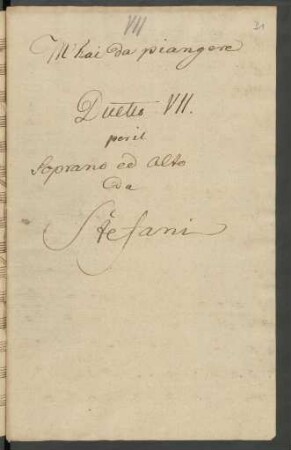 VII
31
M'hai da piangere
Duetto VII.
per il
Soprano ed Alto
Da
Stefani